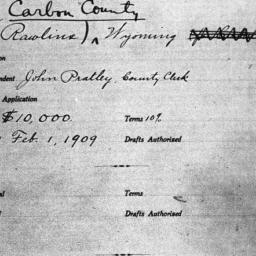 Carbon County
Rawlins) ^ Wyoming
on
ndent John Pratley, County Clerk
Application
$10,000. Terms 10%
Feb. 1, 1909 Drafts Authorized
al Terms
Drafts Authorized